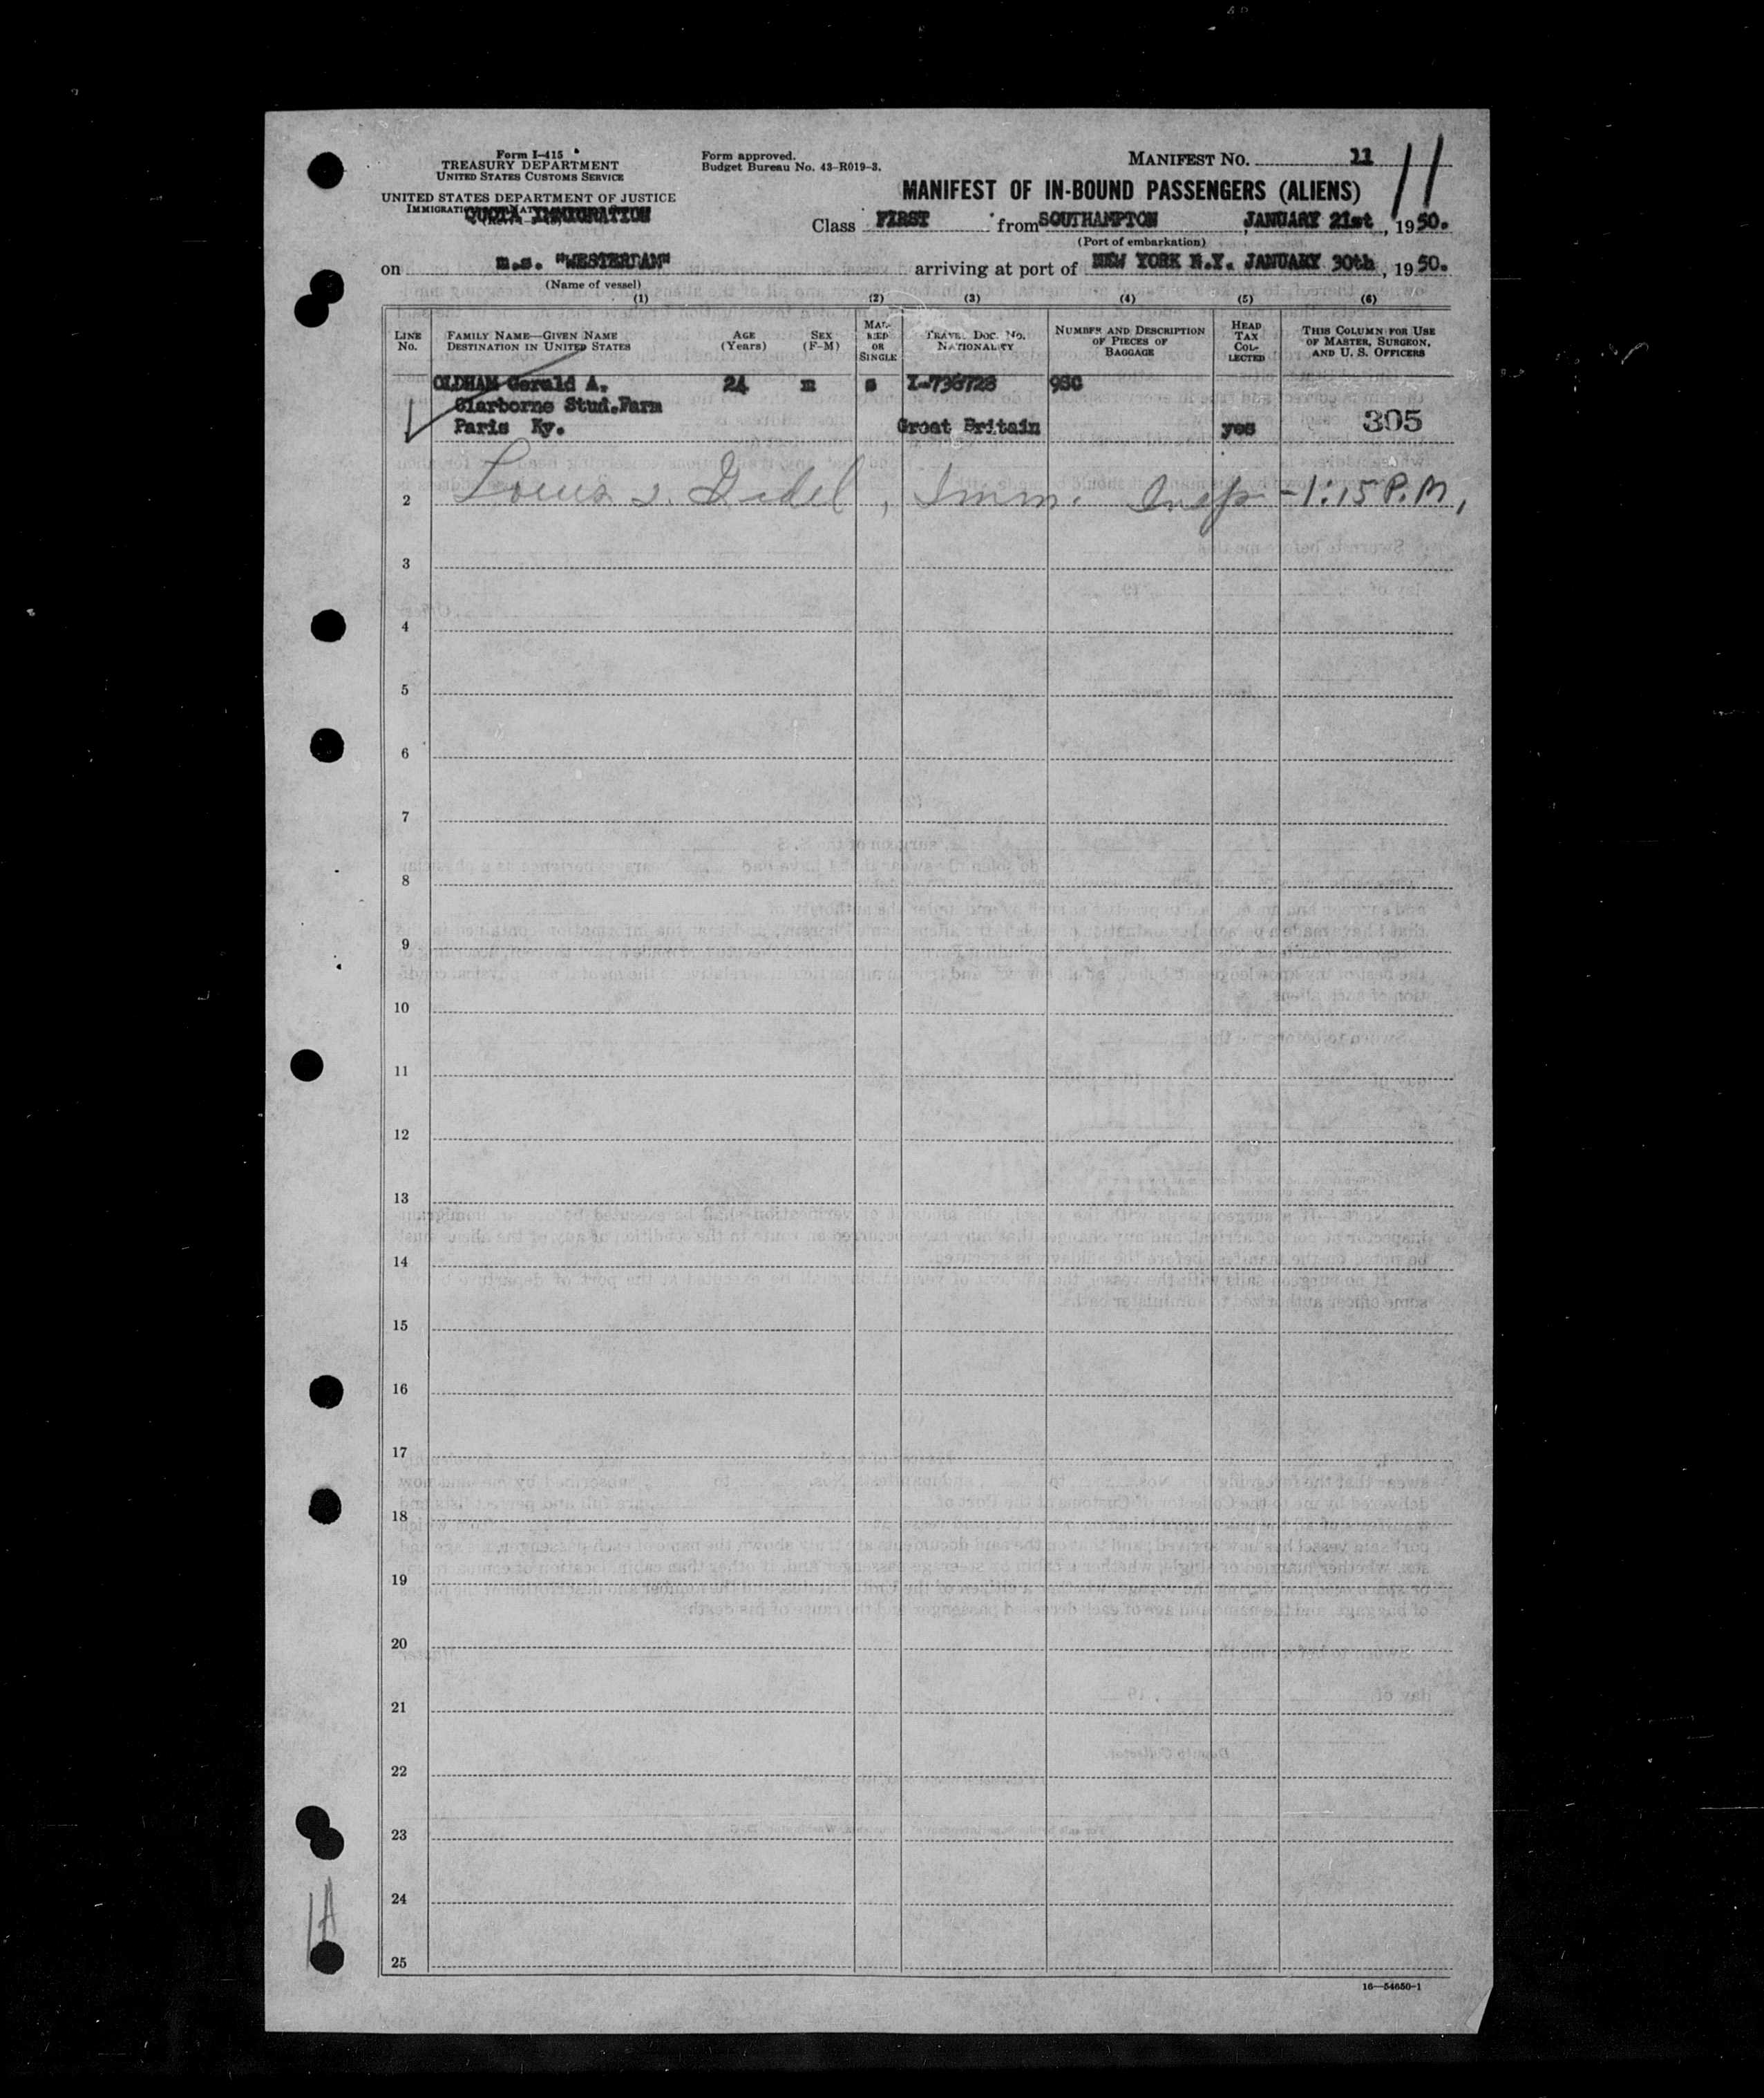 Form I-415
TREASURY DEPARTMENT
UNITED STATES CUSTOMS SERVICE
UNITED STATES DEPARTMENT OF JUSTICE
QUOTA IMMIGRATION
Form approved.
Budget Bureau No. 43-R019-3.
MANIFEST NO. 11
11
MANIFEST OF IN-BOUND PASSENGERS (ALIENS)
Class FIRST from SOUTHAMPTON, JANUARY 21st, 1950.
(Port of embarkation)
on m.s. "WESTERDAM" arriving at port of NEW YORK N.Y. JANUARY 30th, 1950.
(Name of vessel)
(1) (2) (3) (4) (5) (6)
LINE No.
FAMILY NAME—GIVEN NAME
DESTINATION IN UNITED STATES
AGE (Years)
SEX (F-M)
MARRIED OR SINGLE
TRAVEL DOC. NO.
NATIONALITY
NUMBER AND DESCRIPTION OF PIECES OF BAGGAGE
HEAD TAX COLLECTED
THIS COLUMN FOR USE OF MASTER, SURGEON, AND U. S. OFFICERS
OLDHAM Gerald A. 24 m s I-738728 9SC
Clarborne Stud.Farm
Paris Ky. Great Britain yes 305
2 Louis Imm. Insp - 1:15 P.M.
3
4
5
6
7
8
9
10
11
12
13
14
15
16
17
18
19
20
21
22
23
24
25
1A
16—54650-1